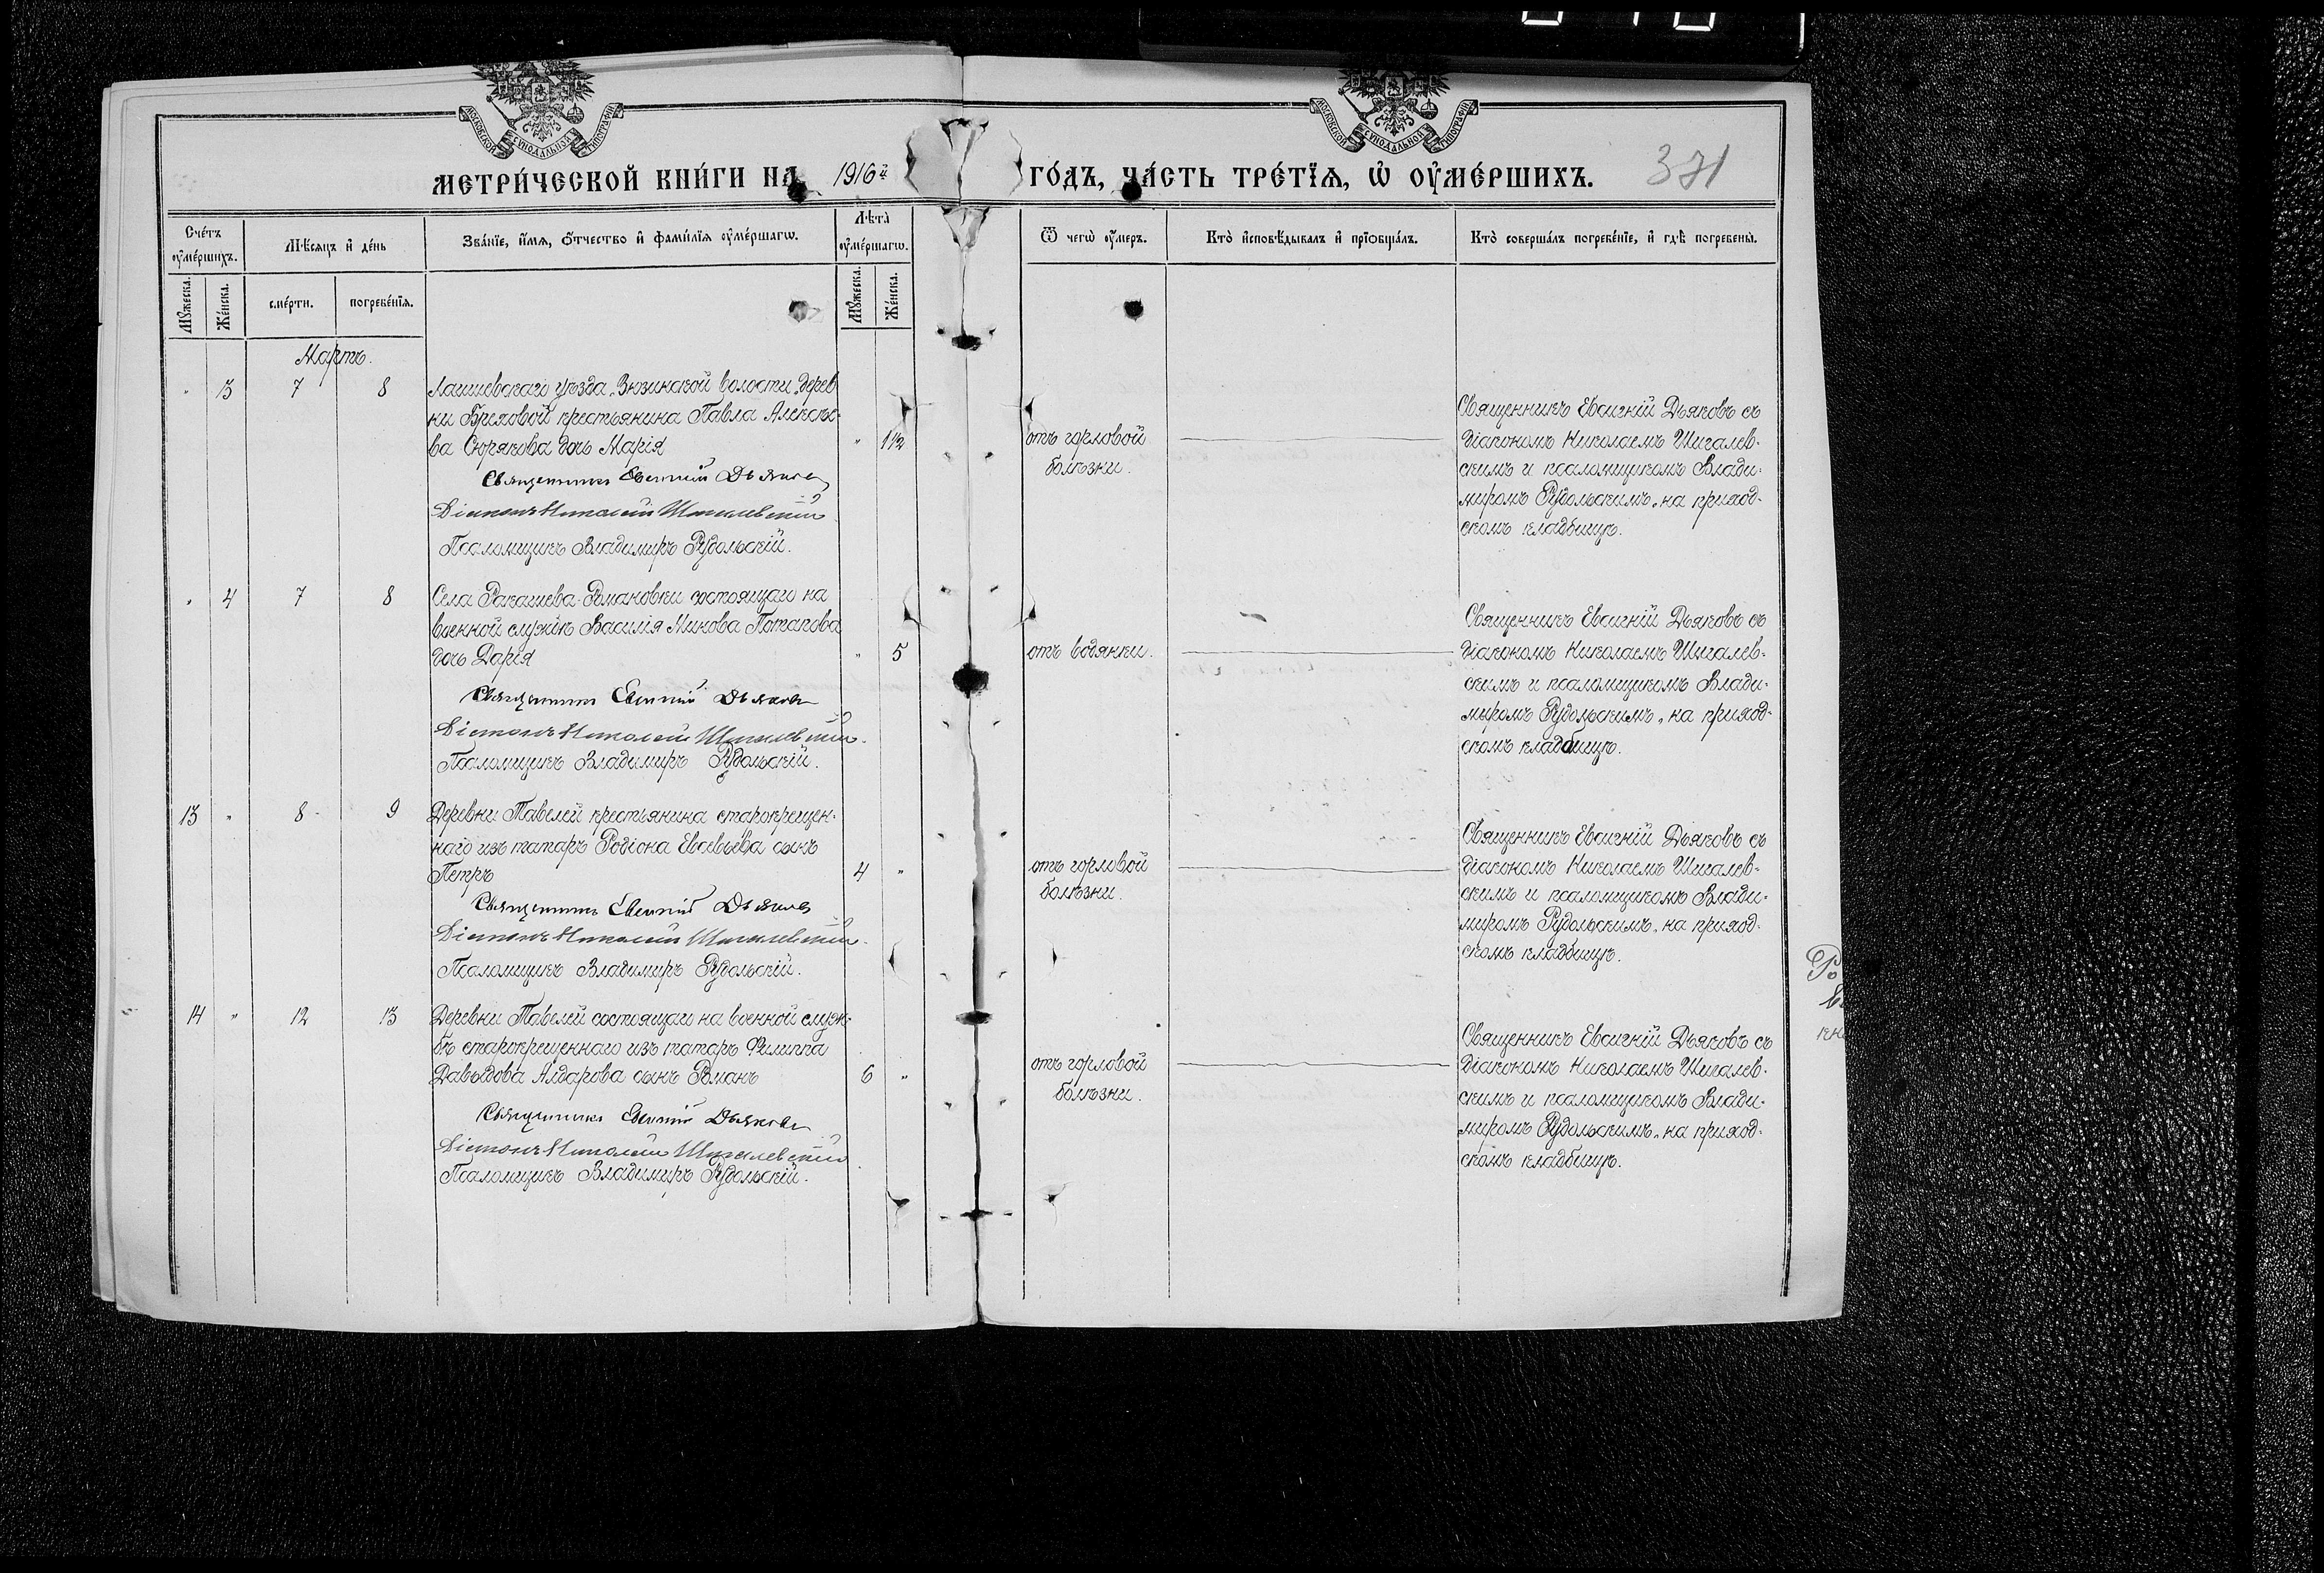 МОСКОВСКОЙ СѴНОДАЛЬНОЙ ТИПОГРАФІИ
МОСКОВСКОЙ СѴНОДАЛЬНОЙ ТИПОГРАФІИ
МЕТРИ́ЧЕСКОЙ КНИ́ГИ НА 1916й ГО́ДЪ, ЧА́СТЬ ТРЕ́ТЇѦ, Ѽ ОУ҆МЕ́РШИХЪ. 371
Сче́тъ оу҆ме́ршихъ.
Мѣ́сяцъ и҆ де́нь
Зва́нїе, и҆́мѧ, ѻ҆́тчество и҆ фами́лїѧ оу҆ме́ршагѡ.
Лѣ́та оу҆ме́ршагѡ.
Ѿ чегѡ̀ оу҆́меръ.
Кто̀ и҆сповѣ́дывалъ и҆ прїѻбща́лъ.
Кто̀ соверша́лъ погребе́нїе, и҆ гдѣ̀ погребены̀.
Мꙋ́жеска. Же́нска. сме́рти. погребе́нїѧ. Мꙋ́жеска. Же́нска.
Мартъ.
" 3 7 8 Лаишевскаго уѣзда, Зюзинской волости, дерев
ни Бреховой крестьянина Павла Алексѣе-
ва Сюрякова дочь Марія " 1½
Священникъ Евгеній Дьяковъ
Діаконъ Николай Шигалевскій
Псаломщикъ Владимиръ Рудольскій.
отъ горловой
болѣзни.
Священникъ Евгеній Дьяковъ съ
діакономъ Николаемъ Шигалев-
скимъ и псаломщикомъ Влади-
миромъ Рудольскимъ, на приход-
скомъ кладбищѣ.
" 4 7 8 Села Ракашева-Романовки состоящаго на
военной службѣ Василія Минова Потапова
дочь Дарія " 5
Священникъ Евгеній Дьяковъ
Діаконъ Николай Шигалевскій.
Псаломщикъ Владимиръ Рудольскій.
отъ водянки.
Священникъ Евгеній Дьяковъ съ
діакономъ Николаемъ Шигалев-
скимъ и псаломщикомъ Влади-
миромъ Рудольскимъ, на приход-
скомъ кладбищѣ.
13 " 8 9 Деревни Тавелей крестьянина старокрещен-
наго изъ татаръ Родіона Евсевьева сынъ
Петръ 4 "
Священникъ Евгеній Дьяковъ
Діаконъ Николай Шигалевскій.
Псаломщикъ Владимиръ Рудольскій.
отъ горловой
болѣзни.
Священникъ Евгеній Дьяковъ съ
діакономъ Николаемъ Шигалев-
скимъ и псаломщикомъ Влади-
миромъ Рудольскимъ, на приход-
скомъ кладбищѣ.
14 " 12 13 Деревни Тавелей состоящаго на военной служ-
бѣ старокрещеннаго изъ татаръ Филиппа
Давыдова Алдарова сынъ Романъ 6 "
Священникъ Евгеній Дьяковъ
Діаконъ Николай Шигалевскій.
Псаломщикъ Владимиръ Рудольскій.
отъ горловой
болѣзни.
Священникъ Евгеній Дьяковъ съ
діакономъ Николаемъ Шигалев-
скимъ и псаломщикомъ Влади-
миромъ Рудольскимъ, на приход-
скомъ кладбищѣ.